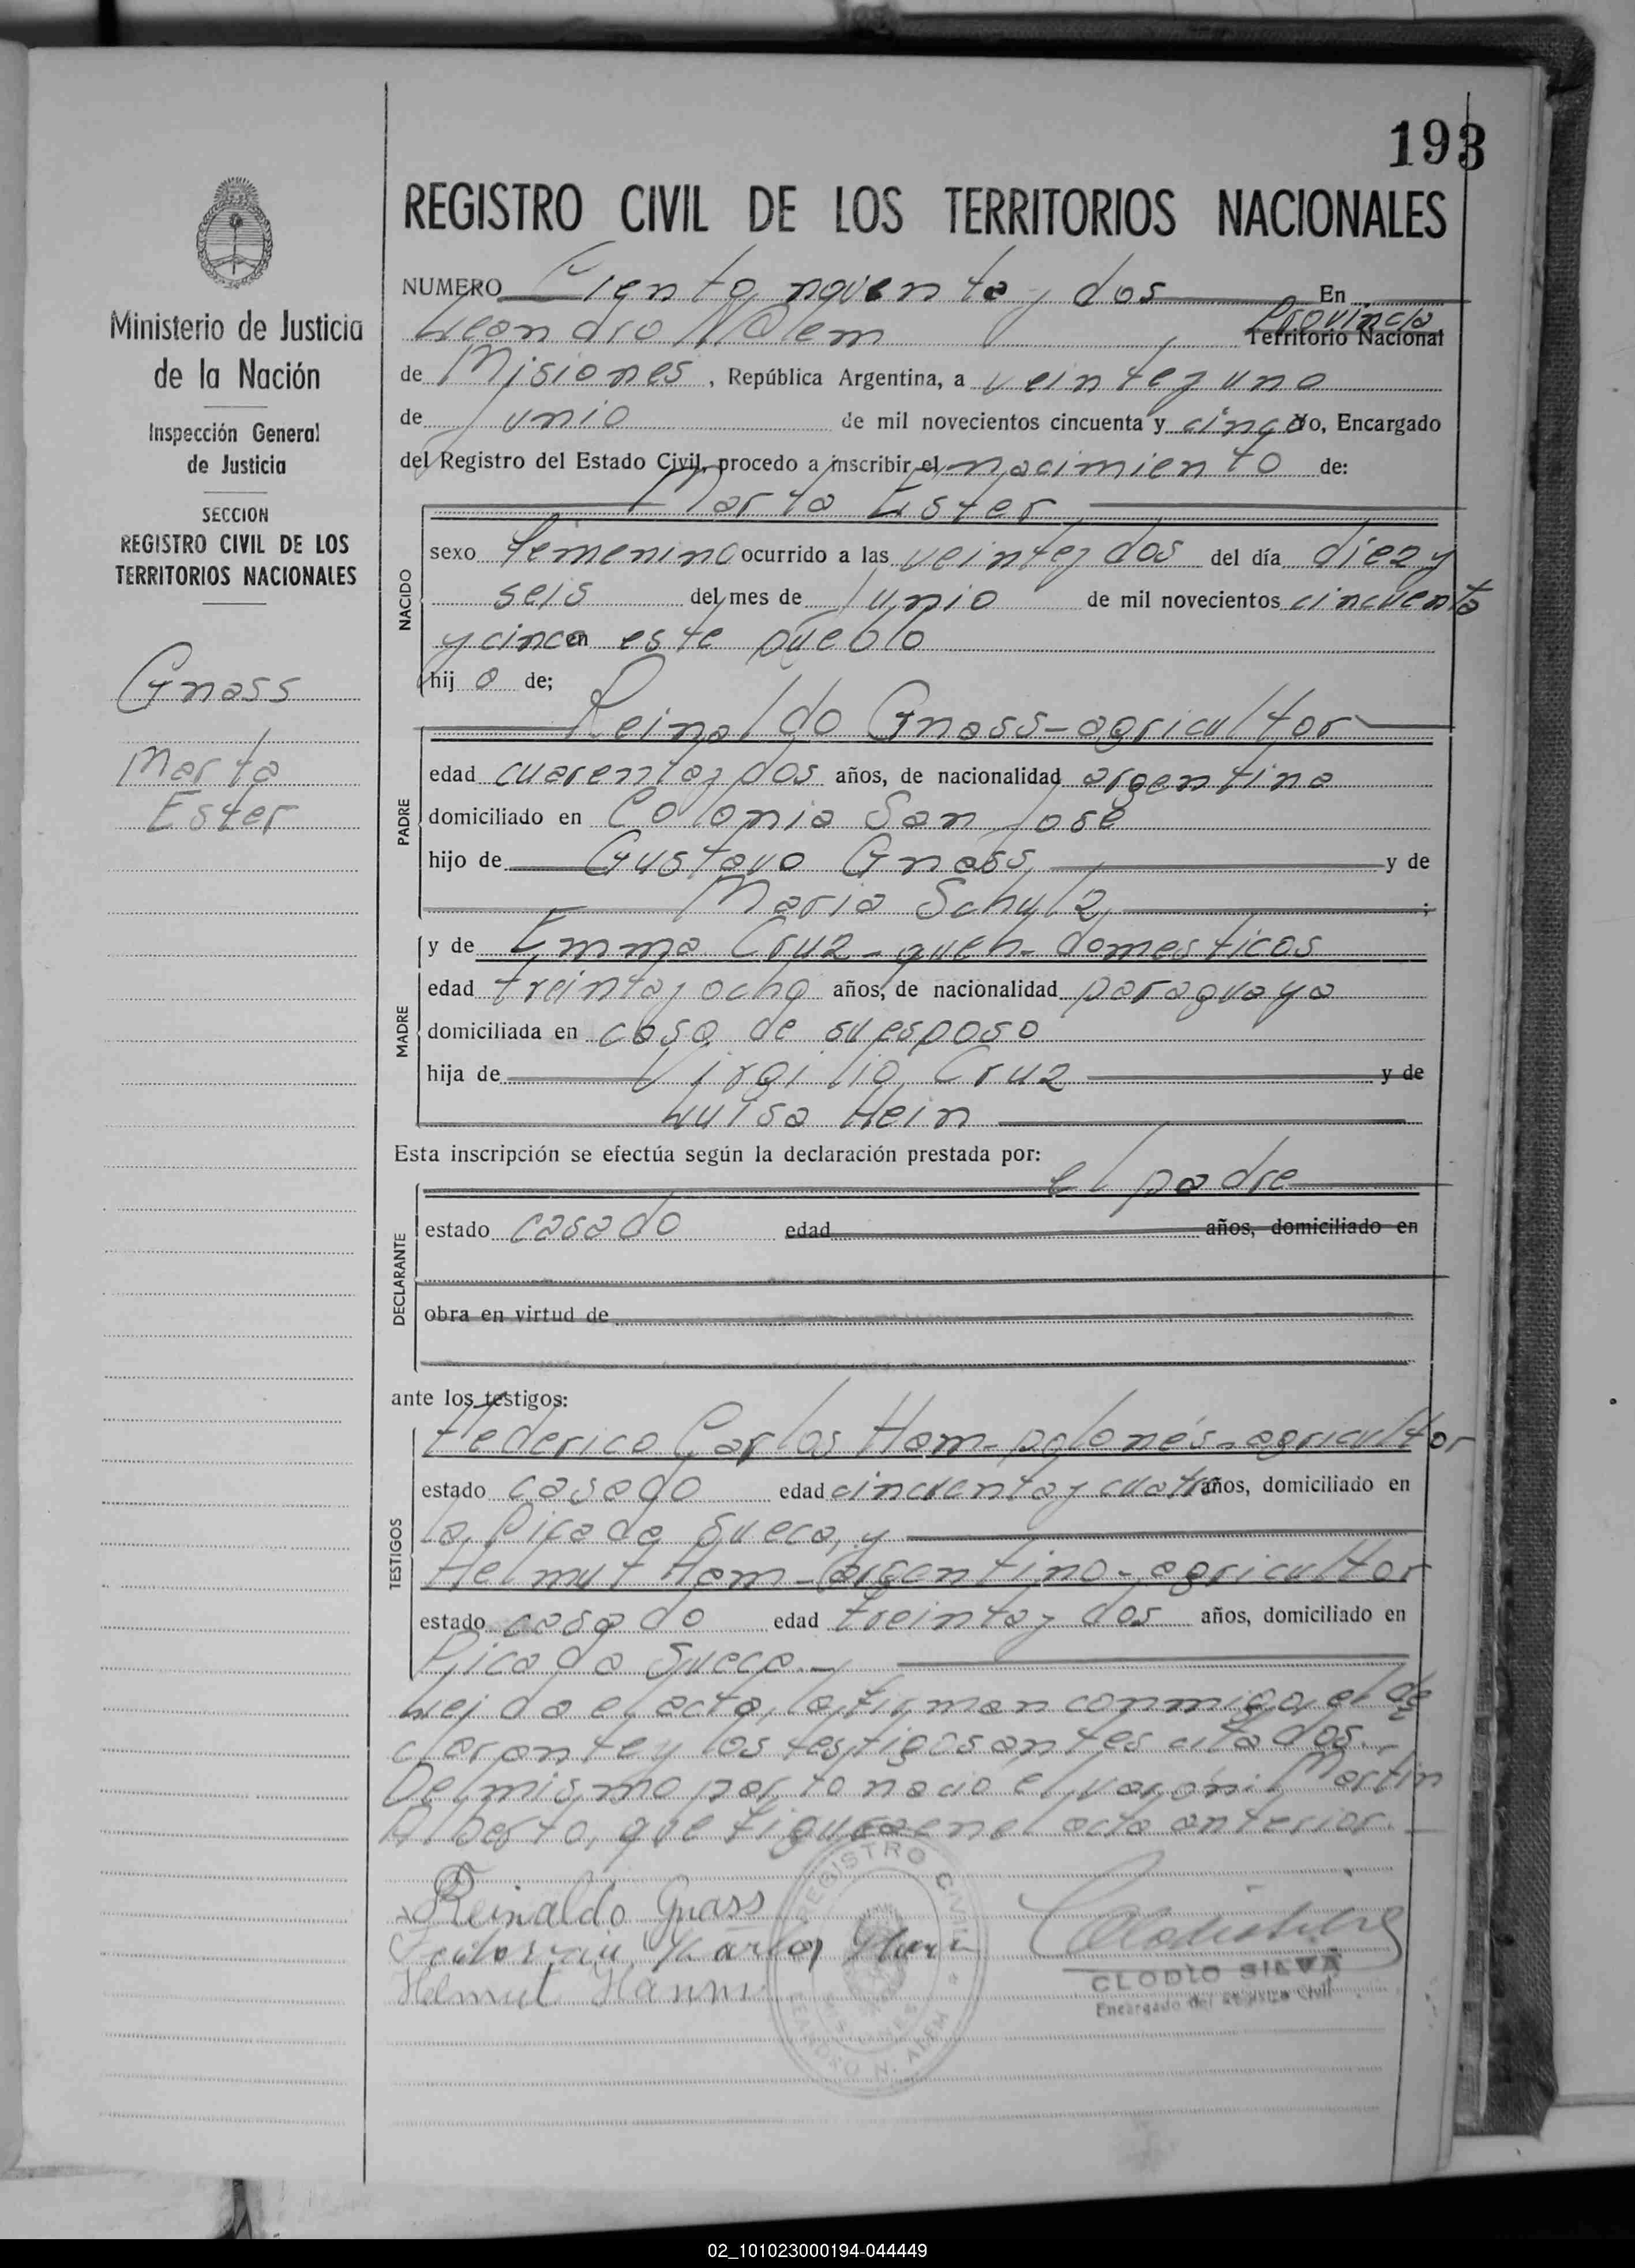 193
REGISTRO CIVIL DE LOS TERRITORIOS NACIONALES
Ministerio de Justicia
de la Nación
Inspección General
de Justicia
SECCION
REGISTRO CIVIL DE LOS
TERRITORIOS NACIONALES
Gnass
Marta
Ester
NUMERO Ciento noventa y dos En
Leandro N Alem Provincia
Territorio Nacional
de Misiones, República Argentina, a veinte y uno
de Junio de mil novecientos cincuenta y cinco Yo, Encargado
del Registro del Estado Civil, procedo a inscribir el nacimiento de:
NACIDO
Marta Ester
sexo femenino ocurrido a las veinte y dos del día diez y
seis del mes de Junio de mil novecientos cincuenta
y cinco en este pueblo
hij a de;
PADRE
Reinaldo Gnass - agricultor
edad cuarenta y dos años, de nacionalidad argentina
domiciliado en Colonia San José
hijo de Gustavo Gnass y de
Maria Schulz ;
MADRE
y de Emma Cruz - queh- domesticos
edad treinta y ocho años, de nacionalidad paraguaya
domiciliada en casa de su esposo
hija de Virgilio Cruz y de
Luisa Hein
Esta inscripción se efectúa según la declaración prestada por:
DECLARANTE
el padre
estado casado edad años, domiciliado en
obra en virtud de
ante los testigos:
TESTIGOS
Federico Carlos Ham - polonés - agricultor
estado casado edad cincuenta y cuatro años, domiciliado en
la Picada Sueca, y
Helmut Ham - argentino - agricultor
estado casado edad treinta y dos años, domiciliado en
Picada Sueca.-
Leida el acta, la firman conmigo, el de
clarante y los testigos antes citados.-
Del mismo parto nació el varón: Martin
Alberto, que figura en el acta anterior.-
Reinaldo Gnass
Helmut Hamm
REGISTRO CIVIL
MISIONES
LEANDRO N. ALEM
CLODIO SILVA
Encargado del Registro Civil
02_101023000194-044449